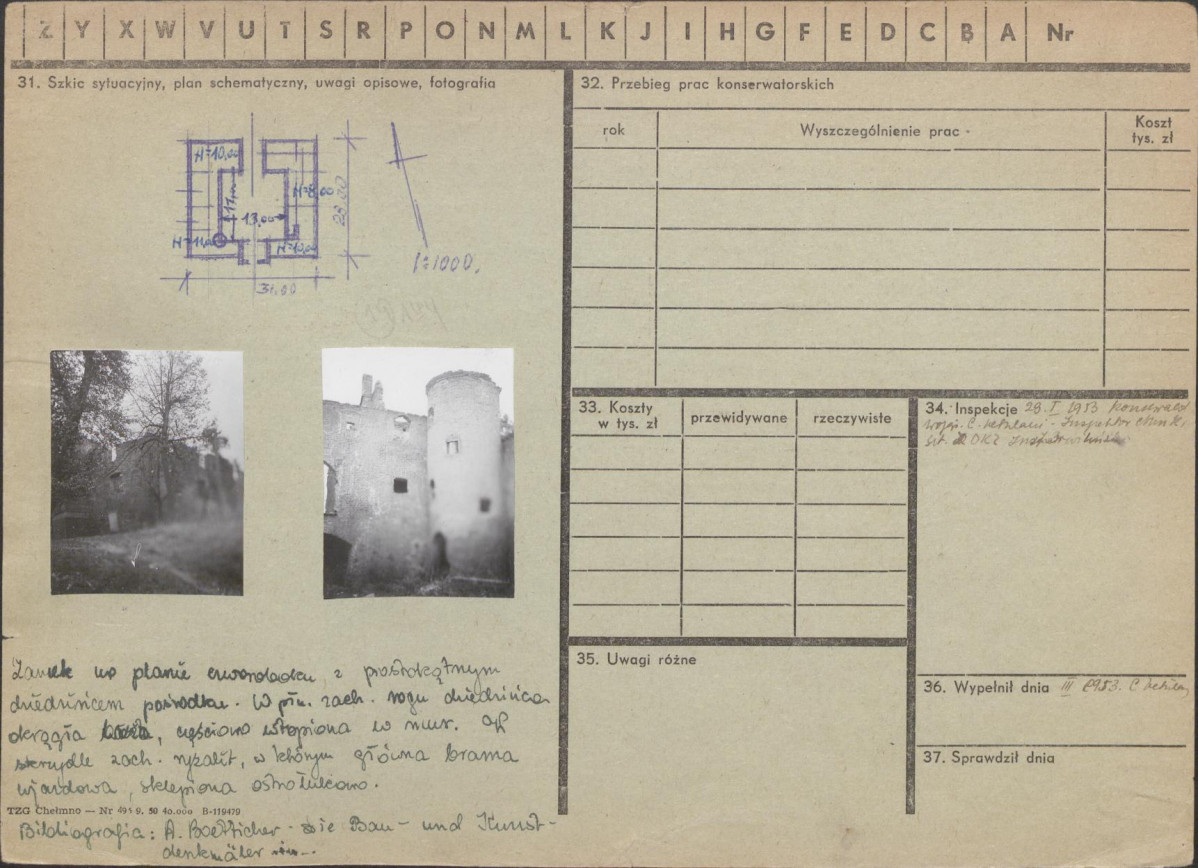 Z Y X W V U T S R P O N M L K J I H G F E D C B A Nr
31. Szkic sytuacyjny, plan schematyczny, uwagi opisowe, fotografia
H=10,00
H=8,00
11,
13,00
28.30
H=11,00
H=10,00
31.00
1:1000.
Zamek na planie czworoboku, z prostokątnym
dziedzińcem pośrodku. W płn. zach. rogu dziedzińca
okrągła, częściowo wtopiona w mur. W
skrzydle zach. ryzalit, w którym główna brama
wjazdowa, sklepiona ostrołukowo.
TZG Chełmno — Nr 495 9. 50 40.000 B-119479
Bibliografia: A. Boetticher - Die Bau- und Kunst-
denkmäler
32. Przebieg prac konserwatorskich
rok
Wyszczególnienie prac
Koszt
tys. zł
33. Koszty
w tys. zł
przewidywane
rzeczywiste
34. Inspekcje 28. I 1953
35. Uwagi różne
36. Wypełnił dnia III 1953.
37. Sprawdził dnia